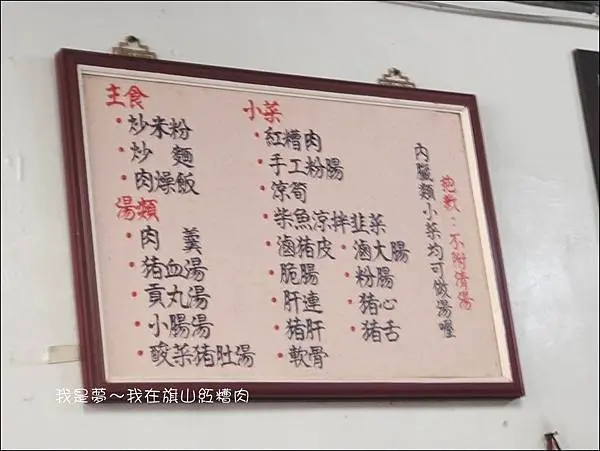 主食
・炒米粉
・炒 麵
・肉燥飯
湯類
・肉 羹
・豬血湯
・貢丸湯
・小腸湯
・酸菜豬肚湯
小菜
・紅糟肉
・手工粉腸
・涼筍
・柴魚涼拌韭菜
・滷豬皮・滷大腸
・脆腸・粉腸
・肝連・豬心
・豬肝・豬舌
・軟骨
抱歉：不附清湯
內臟類小菜均可做湯喔
我是夢～我在旗山紅糟肉